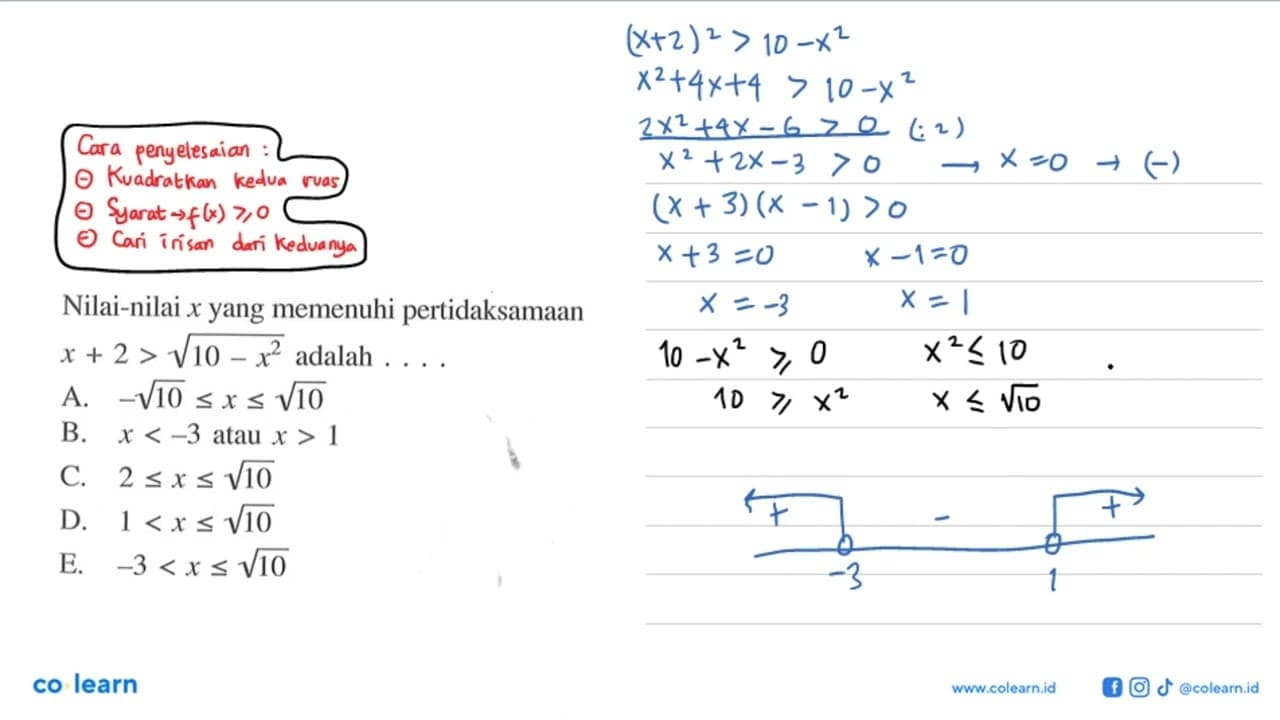 Cara penyelesaian :
⊖ Kuadratkan kedua ruas
⊖ Syarat → f(x) ≥ 0
⊖ Cari irisan dari keduanya
Nilai-nilai x yang memenuhi pertidaksamaan
x + 2 > √(10 – x²) adalah . . . .
A. –√10 ≤ x ≤ √10
B. x < –3 atau x > 1
C. 2 ≤ x ≤ √10
D. 1 < x ≤ √10
E. –3 < x ≤ √10
(x+2)² > 10 – x²
x²+4x+4 > 10 – x²
2x²+4x – 6 > 0 (: 2)
x² + 2x – 3 > 0 → x = 0 → (–)
(x + 3)(x – 1) > 0
x + 3 = 0 x – 1 = 0
x = –3 x = 1
10 – x² ≥ 0 x² ≤ 10
10 ≥ x² x ≤ √10
+ – +
–3 1
co learn
www.colearn.id @colearn.id